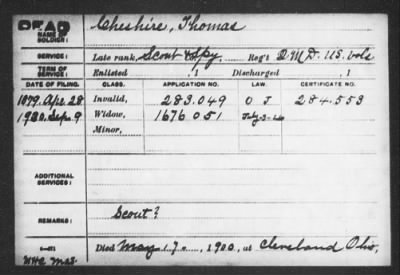 DEAD
NAME OF SOLDIER: Cheshire, Thomas
SERVICE: Late rank, Scout & Spy, Reg't Q.M.D. U.S. Vols
TERM OF SERVICE: Enlisted , 1 Discharged , 1
DATE OF FILING. CLASS. APPLICATION NO. LAW. CERTIFICATE NO.
1879 Apr. 28 Invalid, 283.049 O J 284.553
1920. Sep. 9 Widow, 1676 051
Minor,
ADDITIONAL SERVICES:
REMARKS: Scout?
Died May 17, 1900, at Cleveland Ohio,